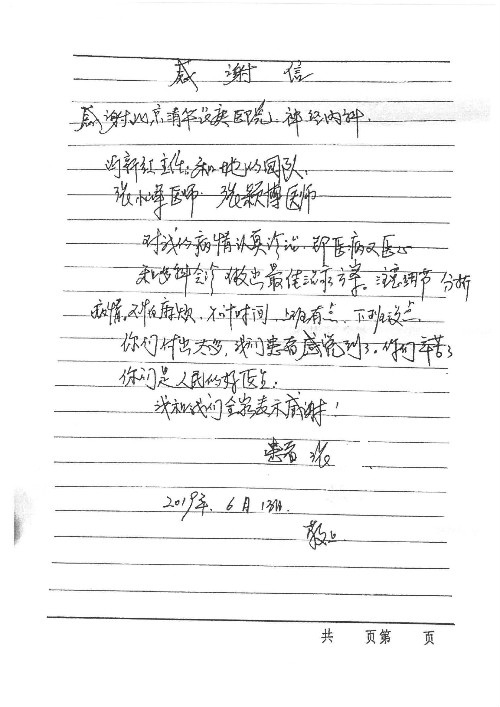 感谢信
感谢北京清华长庚医院 神经内科
新红主任和她的团队
张小 医师 张颖博医师
对我的病情认真诊治 即医病又医心
和 科会诊 做出最佳治疗方案。注意细节 分析
病情 不怕麻烦 不计时间 上班有点 下班没点
你们付出太多，我们患者感觉到了，你们辛苦了
你们是人民的好医生
我和我们全家表示感谢！
患者 张
2019年6月13日
敬上
共 页第 页